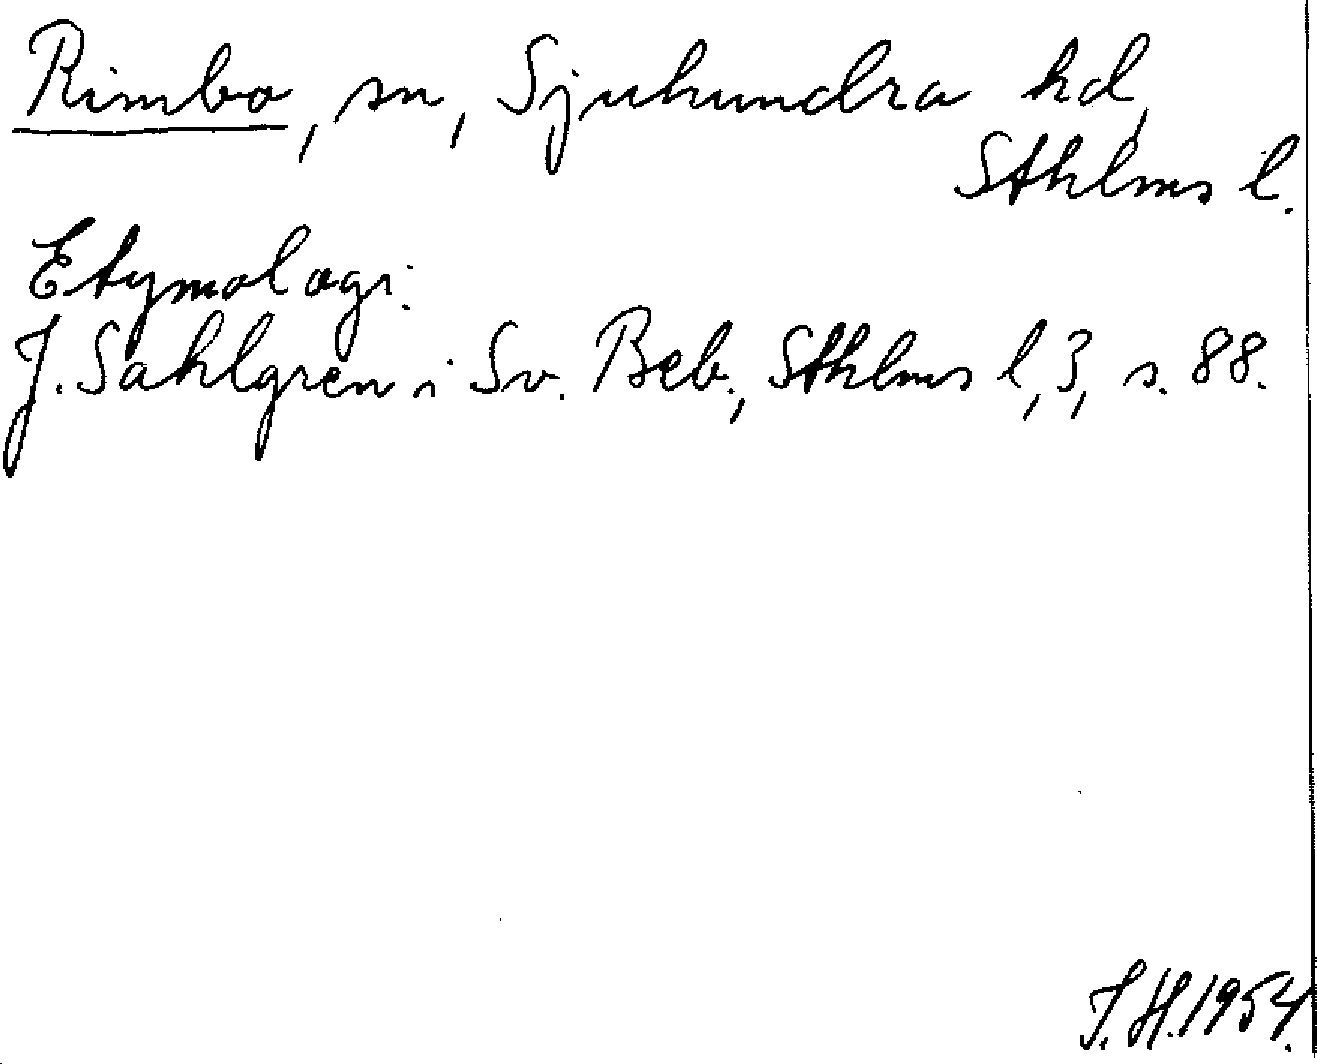 Rimbo, sn, Sjuhundra hd,
Sthlms l.
Etymologi:
J. Sahlgren i Sv. Beb., Sthlms l, 3, s. 88.
J. H. 1954.